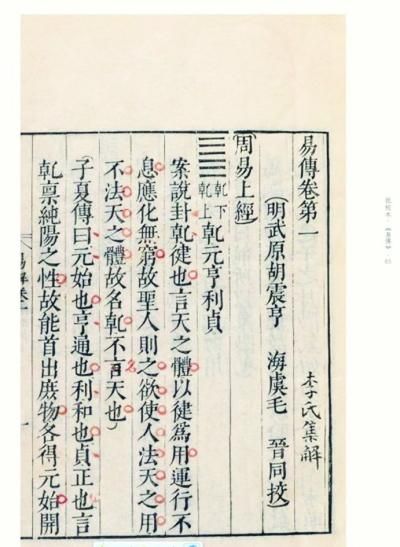 易傳卷第一
李氏集解
(明武原胡震亨　海虞毛　晉同挍)
(周易上經)
乾下
乾上
乾元亨利貞
案說卦乾健也言天之體以健爲用運行不
息應化無窮故聖人則之欲使人法天之用
不法天之體故名乾不言天也)
(子夏傳曰元始也亨通也利和也貞正也言
乾禀純陽之性故能首出庶物各得元始開
易解卷一
一
批校本·《易傳》·65